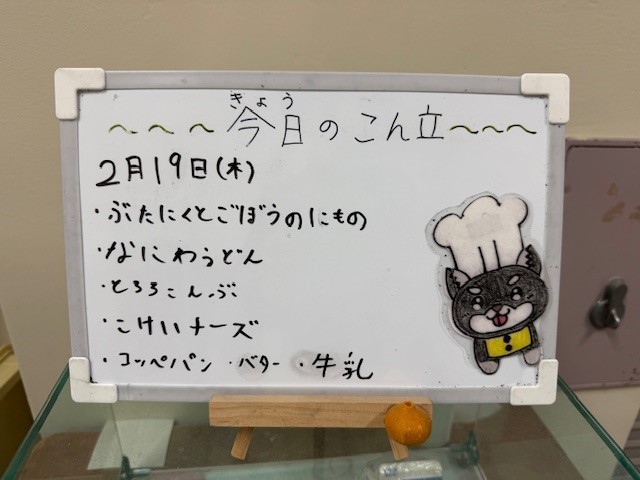 きょう
～～～今日のこん立～～～
2月19日(木)
・ぶたにくとごぼうのにもの
・なにわうどん
・とろろこんぶ
・こけいチーズ
・コッペパン ・バター ・牛乳